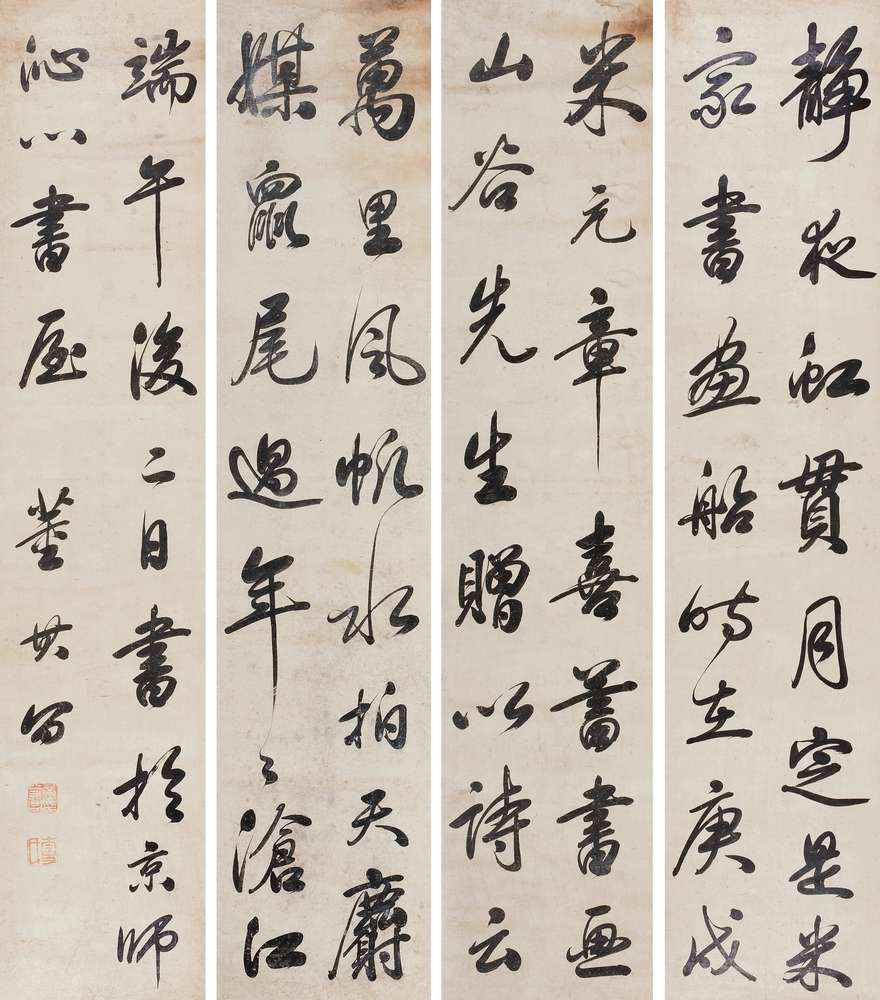 靜夜虹貫月定是米
家書畫船時在庚戌
米元章喜蓄書畫
山谷先生贈以詩云
萬里風帆水拍天麝
媒鼠尾過年〻滄江
端午後二日書於京師
沁心書屋 董其昌